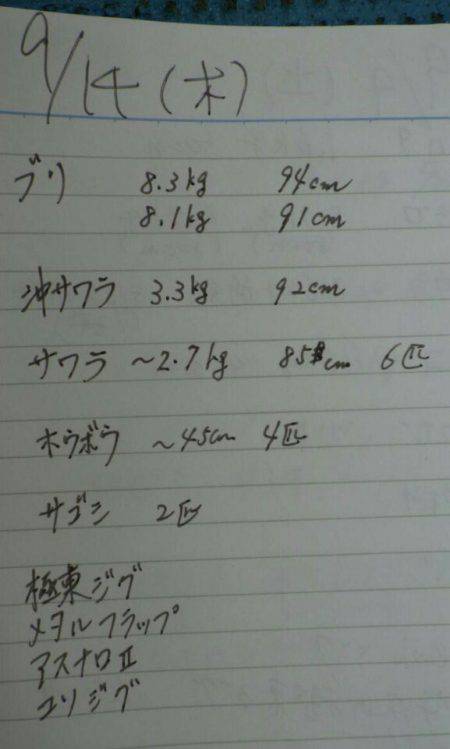 9/14(木)
ブリ 8.3kg 94cm
8.1kg 91cm
沖サワラ 3.3kg 92cm
サワラ ~2.7kg 85cm 6匹
ホウボウ ~45cm 4匹
サゴシ 2匹
極東ジグ
メタルフラップ
アスナロⅡ
コソジグ